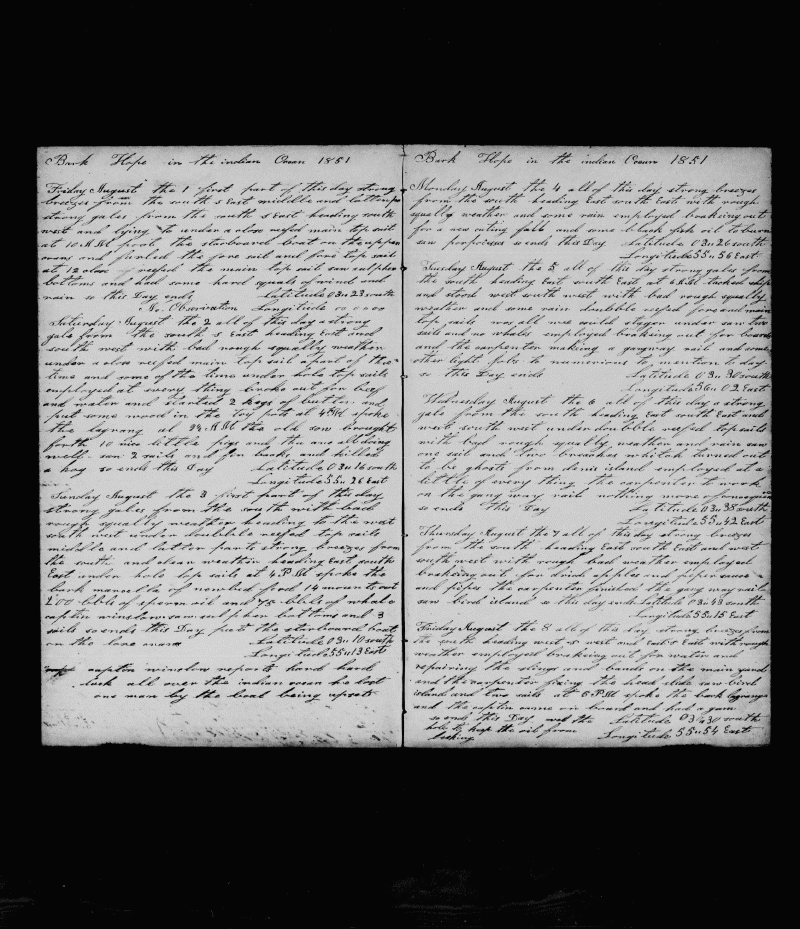 Bark Hope in the indian Ocean 1851
Friday August the 1 first part of this day strong
breezes from the south s East middle and latter part
strong gales from the south s East heading south
west and lying to under a close reefed main top sail
at 10 A.M put the starboard boat on the upper
cranes and furled the fore sail and fore top sail
at 12 close reefed the main top sail saw sulpher
bottoms and had some hard squalls of wind and
rain so this Day ends Latitude 03 " 23 south
No Observation Longitude 00 0 00
Saturday August the 2 all of this day a strong
gale from the south s East heading East and
south west with bad rough squally weather
under a close reefed main top sail a part of the
time and some of the time under hole top sails
employed at every thing broke out for beef
and water and 2 kegs of butter and
put some wood in the try pots at 4 P.M spoke
the lagrang at A.M the old son brought
forth 10 nice little pigs and the are all doing
well saw 2 sails and fin backs and killed
a hog so ends this Day Latitude 03 " 16 south
Longitude 55 " 26 East
Sunday August the 3 first part of this day
strong gales from the south with bad
rough squally weather heading to the west
south west under doubble reefed top sails
middle and latter parts strong breezes from
the south and clean weather heading East south
East under hole top sails at 4 P.M spoke the
bark of newbed ford 14 months out
200 bbls of sperm oil and 75 bbls of whale
captin winslow saw sulpher bottoms and 3
sails so ends this Day put the starboard boat
on the lore cranes Latitude 03 " 10 south
Longitude 55 " 13 East
captin winslow reports hard hard
luck all over the indian ocean he lost
one man by the boat being upsett
Bark Hope in the indian Ocean 1851
Monday August the 4 all of this day strong breezes
from the south heading East south East with rough
squally weather and some rain employed brakeing out
for a new cuting falls and some black fish oil to burn
saw porpoises so ends this Day Latitude 03 " 26 south
Longitude 55 " 56 East
Tuesday August the 5 all of this day strong gales from
the south heading East south East at 6 A.M tacked ship
and stood west south west with bad rough squally
weather and some rain doubble reefed fore and main
top sails all we could stager under saw two
sails and no whales employed breaking out for boards
and the carpenter making a gangway rail and some
other light jobs to numerious to mention to day
so this Day ends Latitude 03 " 30 south
Longitude 56 " 02 East
Wednesday August the 6 all of this day a strong
gale from the south heading East south East and
west south west under doubble reefed top sails
with bad rough squally weather and rain saw
one sail and two breaches whitch turned out
to be ghosts from denis island employed at a
little of every thing the carpenter to work
on the gang way rail nothing more
so ends this Day Latitude 03 " 38 south
Longitude 55 " 42 East
Thursday August the 7 all of this day strong breezes
from the south heading East south East and west
south west with rough bad weather employed
brakeing out for dride apples and peper sauce
and pipes the carpenter finished the gang way rails
saw bird island so this day ends Latitude 03 " 43 south
Longitude 55 " 15 East
Friday August the 8 all of this day strong breezes from
the south heading west s west and East s East with rough
weather employed brakeing out for water and
repairing the slings and bands on the main yard
and the carpenter fixing the head slide saw bird
island and two sails at 6 P.M spoke the bark lagrange
and the captin came on board and had a gam
so ends this Day wet the Latitude 03 " 30 south
hole to keep the oil from Longitude 55 " 54 East
leaking